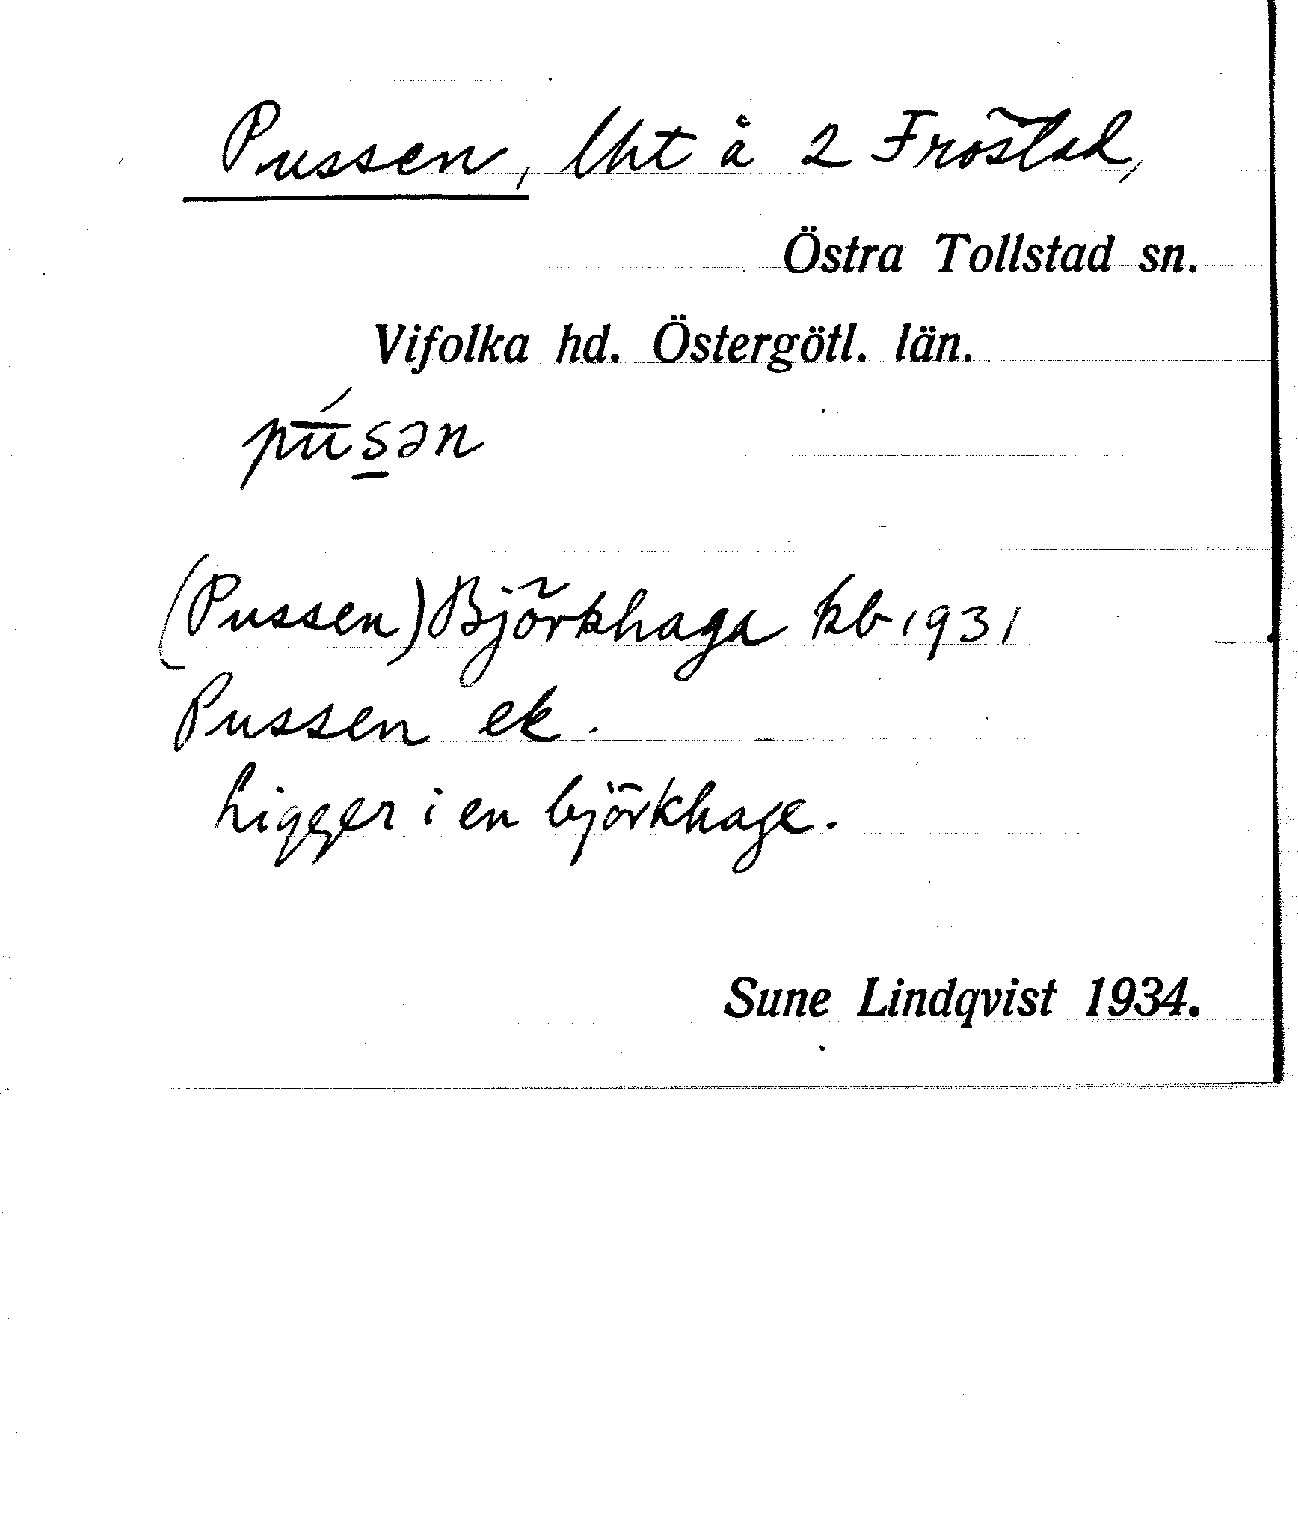 Pussen, lht å 2 Fröstad,
Östra Tollstad sn.
Vifolka hd. Östergötl. län.
pū́s̠ən
(Pussen) Björkhaga kb 1931
Pussen ek.
Ligger i en björkhage.
Sune Lindqvist 1934.